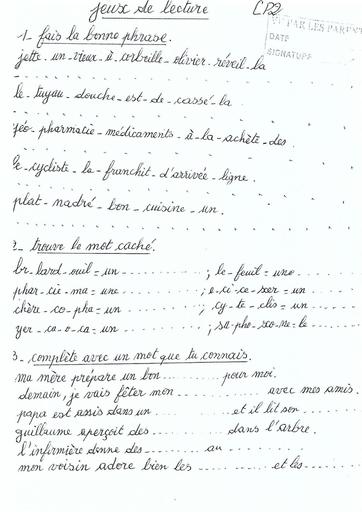 jeux de lecture CP2
VU PAR LES PARENTS
DATE
SIGNATURE
1- fais la bonne phrase.
jette - un - vieux - à - corbeille - olivier - réveil - la
le - tuyau - douche - est - de - cassé - la
géo - pharmacie - médicaments - à - la - achète - des
le - cycliste - la - franchit - d'arrivée - ligne.
plat - nadré - bon - cuisine - un.
2- trouve le mot caché.
br - lard - ouil = un .......... ; le - feuil = une ..........
phar - cie - ma = une .......... ; e - ci - ce - xer = un ..........
chère - co - pha = un .......... ; cy - te - clis = un ..........
yer - ca - o - ca = un .......... ; sa - pho - xo - ne = le ..........
3- complète avec un mot que tu connais.
ma mère prépare un bon .......... pour moi.
demain, je vais fêter mon .......... avec mes amis.
papa est assis dans un .......... et il lit son ..........
guillaume aperçoit des .......... dans l'arbre.
l'infirmière donne des .......... au ..........
mon voisin adore bien les .......... et les ..........